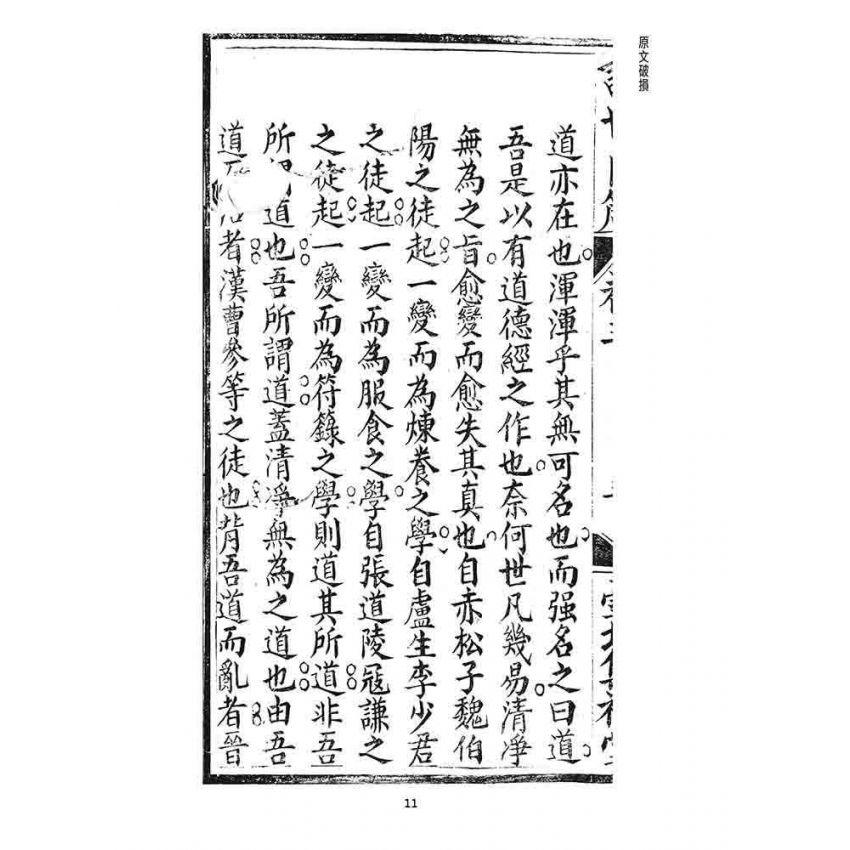 原文破損
道亦在也渾渾乎其無可名也而强名之曰道
吾是以有道德經之作也奈何世凡幾易清淨
無為之旨愈變而愈失其真也自赤松子魏伯
陽之徒起一變而為煉養之學自盧生李少君
之徒起一變而為服食之學自張道陵寇謙之
之徒起一變而為符籙之學則道其所道非吾
所道也吾所謂道蓋清淨無為之道也由吾
道者漢曹參等之徒也背吾道而亂者晉
11